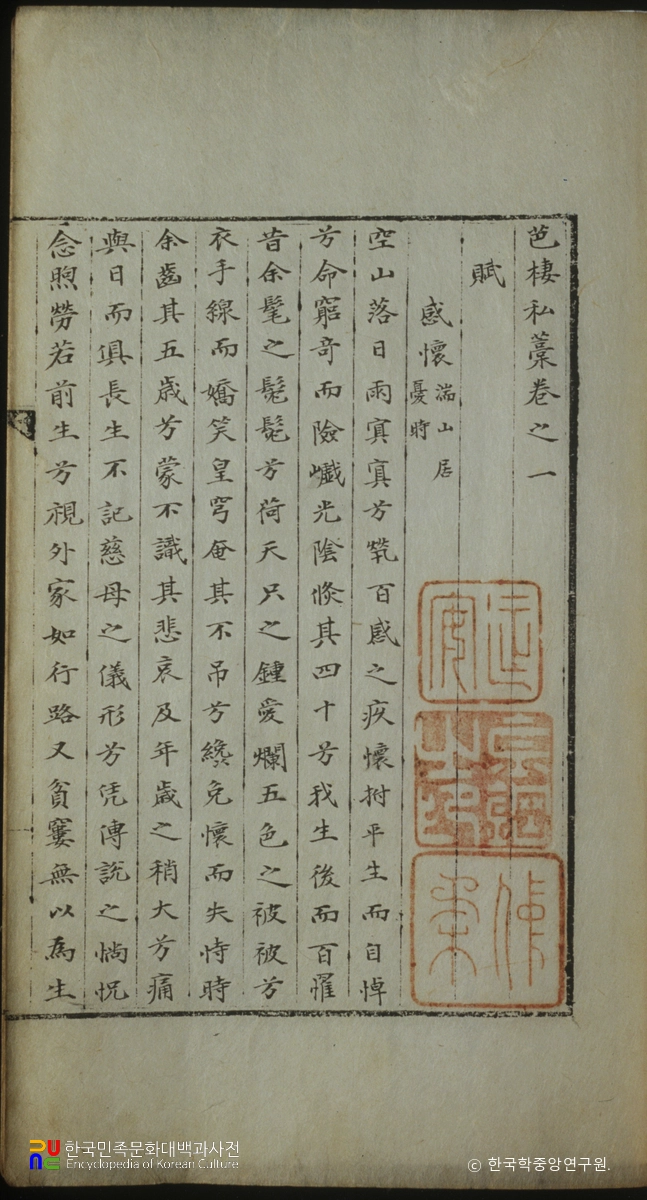 芭棲私藁卷之一
賦
感懷 湍山居憂時
空山落日雨寘寘兮煢百感之疚懷拊平生而自悼
兮命窮奇而險巇光陰倏其四十兮我生後而百罹
昔余髦之髧髧兮荷天只之鍾愛爛五色之被被兮
衣手線而嬌笑皇穹奄其不吊兮纔免懷而失恃時
余齒其五歲兮蒙不識其悲哀及年歲之稍大兮痛
與日而俱長生不記慈母之儀形兮凭傳說之惝怳
念煦勞若前生兮視外家如行路又貧窶無以為生
한국민족문화대백과사전
Encyclopedia of Korean Culture
© 한국학중앙연구원.